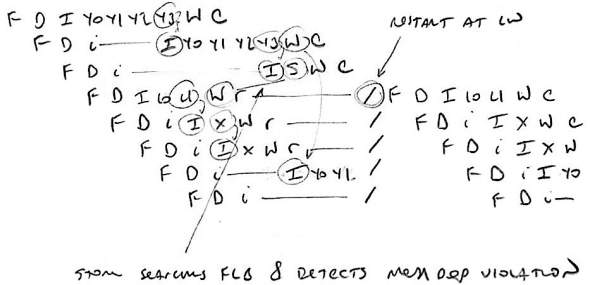 F D I Y0 Y1 Y2 Y3 W C
RESTART AT LW
F D i I Y0 Y1 Y2 Y3 W C
F D i I S W C
F D I L0 L1 W r / F D I L0 L1 W C
F D i I X W r / F D i I X W C
F D i I X W r / F D i I X W
F D i I Y0 Y1 / F D i I Y0
F D i / F D i
STORE SEARCHES FLB & DETECTS MEM DEP VIOLATION